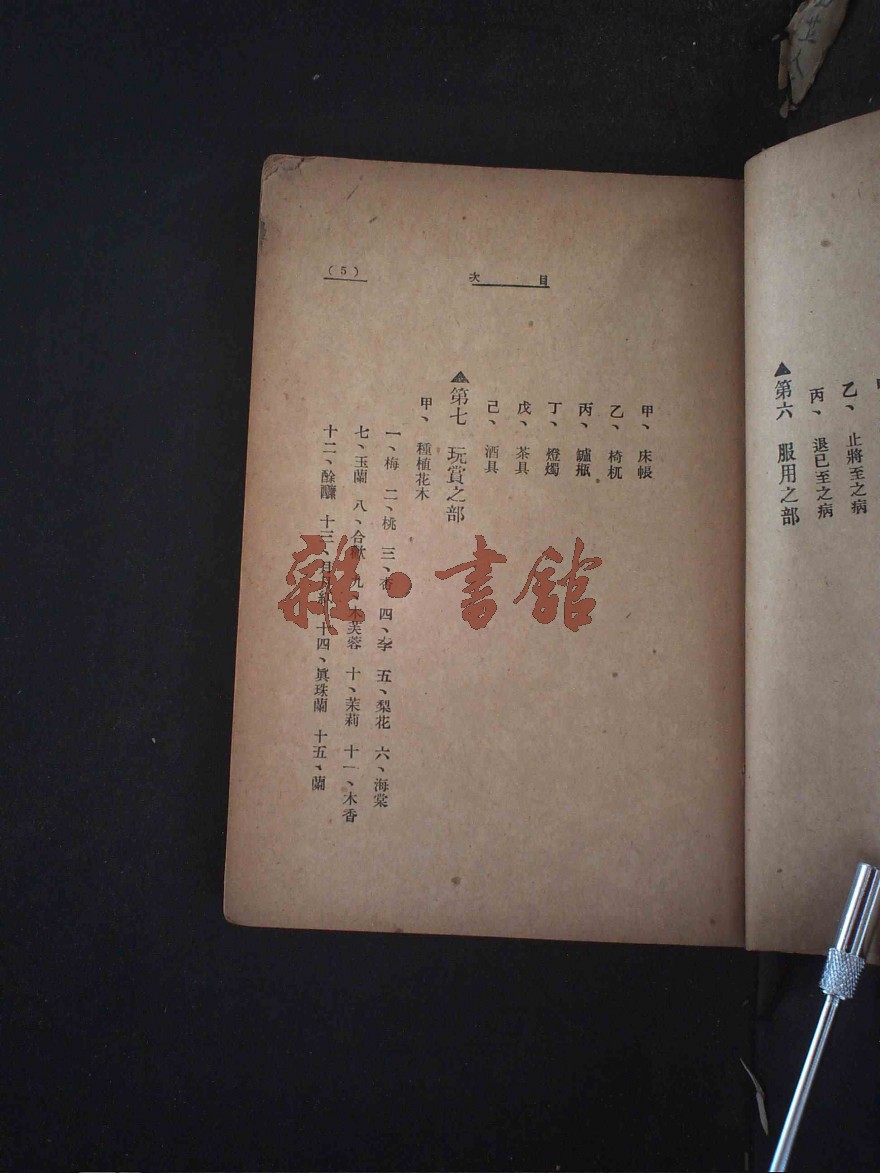 乙、 止將至之病
丙、 退已至之病
▲第六 服用之部
目次
甲、 床帳
乙、 椅杌
丙、 鑪瓶
丁、 燈燭
戊、 茶具
己、 酒具
▲第七 玩賞之部
甲、 種植花木
一、梅 二、桃 三、杏 四、李 五、梨花 六、海棠
七、玉蘭 八、合歡 九、木芙蓉 十、茉莉 十一、木香
十二、酴醾 十三、 十四、眞珠蘭 十五、蘭
(5)
雜·書館